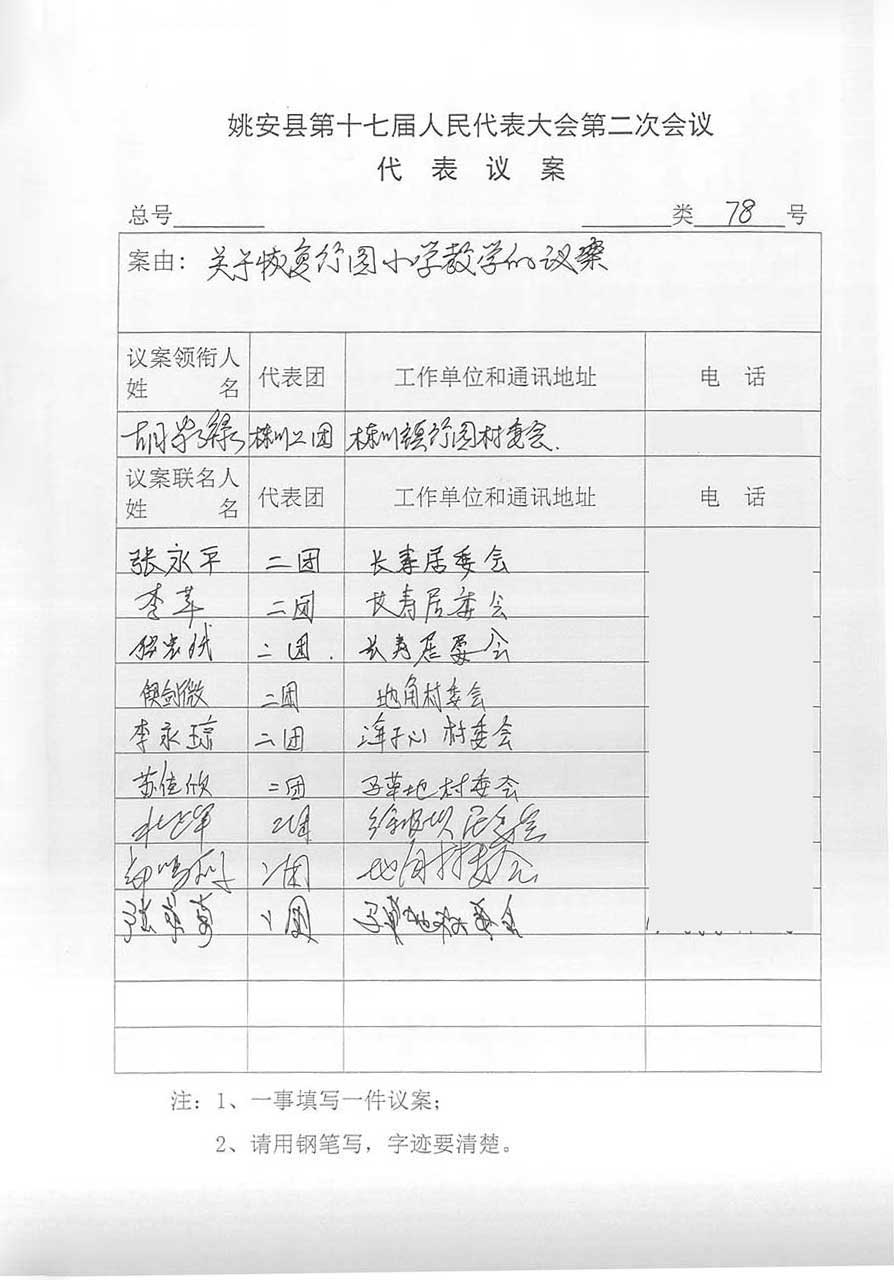 姚安县第十七届人民代表大会第二次会议
代 表 议 案
总号 类 78 号
案由：关于恢复竹园小学教学的议案
议案领衔人姓名 代表团 工作单位和通讯地址 电 话
栋川二团 栋川镇竹园村委会.
议案联名人姓名 代表团 工作单位和通讯地址 电 话
张永平 二团 长寿居委会
李苹 二团 长寿居委会
二团. 长寿居委会
侯剑微 二团 地角村委会
李永琼 二团 村委会
苏佳欣 二团 马草地村委会
二团 居委会
二团 地角村委会
张 二团 马草地村委会
注：1、一事填写一件议案；
2、请用钢笔写，字迹要清楚。